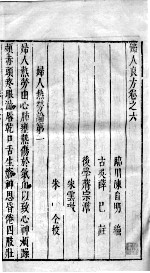 婦人良方卷之六
臨川陳自明 編
古吳薛 己 註
後學蔣宗澹
朱雲 校
朱 仝校
婦人熱勞論第一
婦人熱勞由心肺壅熱傷於氣血以致心神煩躁
頰赤頭疼眼澁唇乾口舌生瘡神思昏倦四肢壯